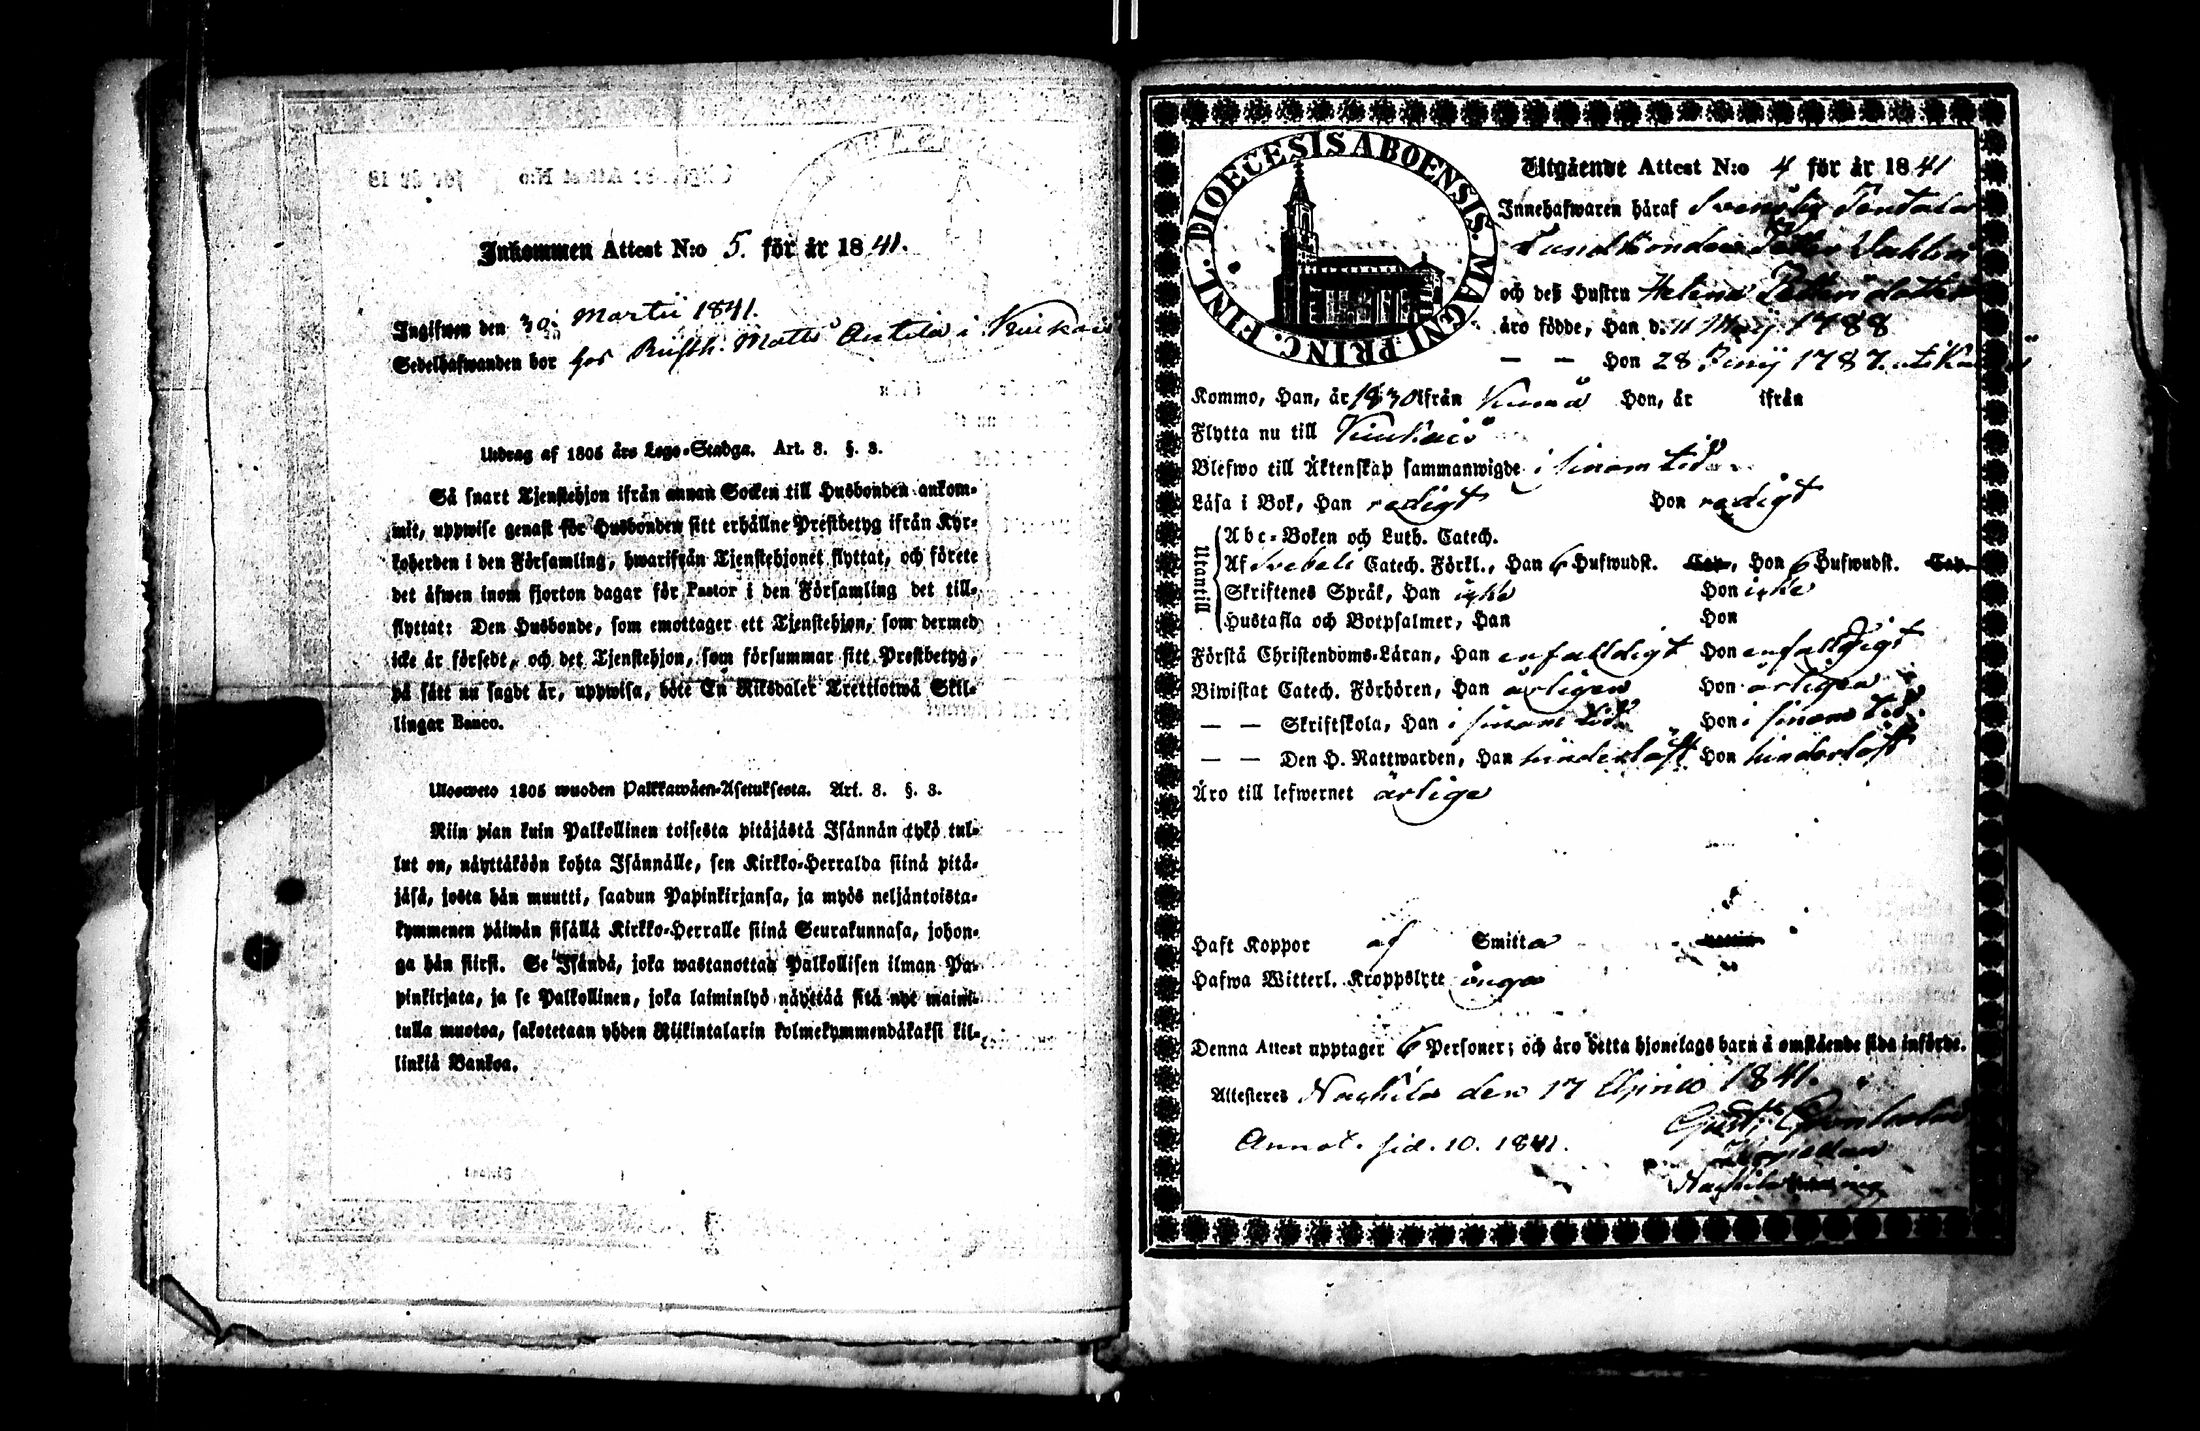 Inkommen Attest N:o 5. för år 1841.
Ingifwen den 30 Martii 1841.
Sedelhafwanden bor hos Rusth. Matts Anttila i Kiukais
Utdrag af 1805 års Lego-Stadga. Art. 3. §. 3.
Så snart Tjenstehjon ifrån annan Socken till Husbonden ankom-
mit, uppwise genast för Husbonden sitt erhållne Prestbetyg ifrån Kyr-
koherden i den Församling, hwarifrån Tjenstehjonet flyttat, och förete
det äfwen inom fjorton dagar för Pastor i den Församling det till-
flyttat: Den Husbonde, som emottager ett Tjenstehjon, som dermed
icke är försedt, och det Tjenstehjon, som försummar sitt Prestbetyg,
på sätt nu sagdt är, uppwisa, böte En Riksdaler Trettiotwå Skil-
lingar Banco.
Ulosweto 1805 wuoden Palkkawäen-Asetuksesta. Art. 3. §. 3.
Niin pian kuin Palkollinen toisesta pitäjästä Isännän tykö tul-
lut on, näyttäköön kohta Isännälle, sen Kirkko-Herralda siinä pitä-
jäsä, josta hän muutti, saadun Papinkirjansa, ja myös neljäntoista-
kymmenen päiwän sisällä Kirkko-Herralle siinä Seurakunnasa, johon-
ga hän siirst. Se Isändä, joka wastanottaa Palkollisen ilman Pa-
pinkirjata, ja se Palkollinen, joka laiminlyö näyttää sitä nyt maini-
tulla muotoa, sakotetaan yhden Riikintalarin kolmekymmendäkaksi kil-
linkiä Bankoa.
DIOECESIS ABOENSIS. MAGNI PRINC. FINL.
Utgående Attest N:o 4 för år 1841
Innehafwaren häraf
Landbonden Petter
och deß Hustru Helena Pettersdotter
äro födde, Han d. 11 Maij 1788
— — Hon 28 Junij 1787.
Kommo, Han, år 1830 ifrån Kumo Hon, år ifrån
Flytta nu till Kiukais
Blefwo till Äktenskap sammanwigde i sinom tid
Läsa i Bok, Han redigt Hon redigt
Utantill
Abc-Boken och Luth. Catech.
Af Svebeli Catech. Förkl., Han 6 Hufwudst. Cap., Hon 6 Hufwudst. Cap.
Skriftenes Språk, Han icke Hon icke
Hustafla och Botpsalmer, Han Hon
Förstå Christendoms-Läran, Han enfalldigt Hon enfalldigt
Biwistat Catech. Förhören, Han årligen Hon årligen
— — Skriftskola, Han i sinom tid Hon i sinom tid.
— — Den H. Nattwarden, Han hinderlöst Hon hinderlöst
Äro till lefwernet ärliga
Haft Koppor af Smitta
Hafwa Witterl. Kroppslyte inga
Denna Attest upptager 6 Personer; och äro detta hjonelags barn å omstående sida införde.
Attesteres Nackila den 17 1841.
Annot. sid. 10. 1841.
Nackila